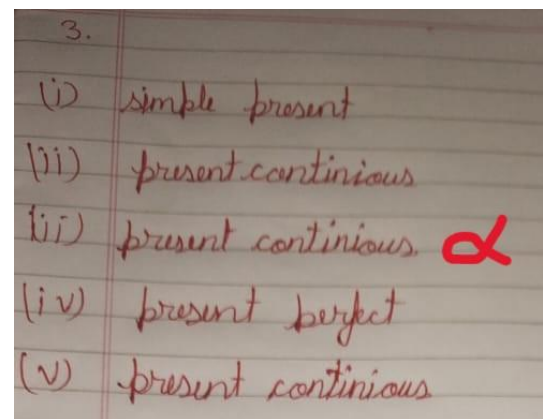 3.
(i) simple present
(ii) present continious
(iii) present continious α
(iv) present perfect
(v) present continious